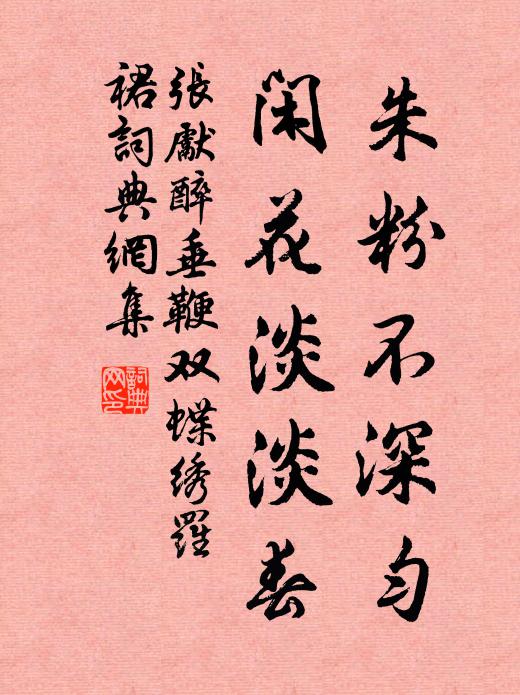 朱粉不深匀
闲花淡淡春
張獻醉垂鞭双蝶绣羅
裙詞典網集
詞典网印